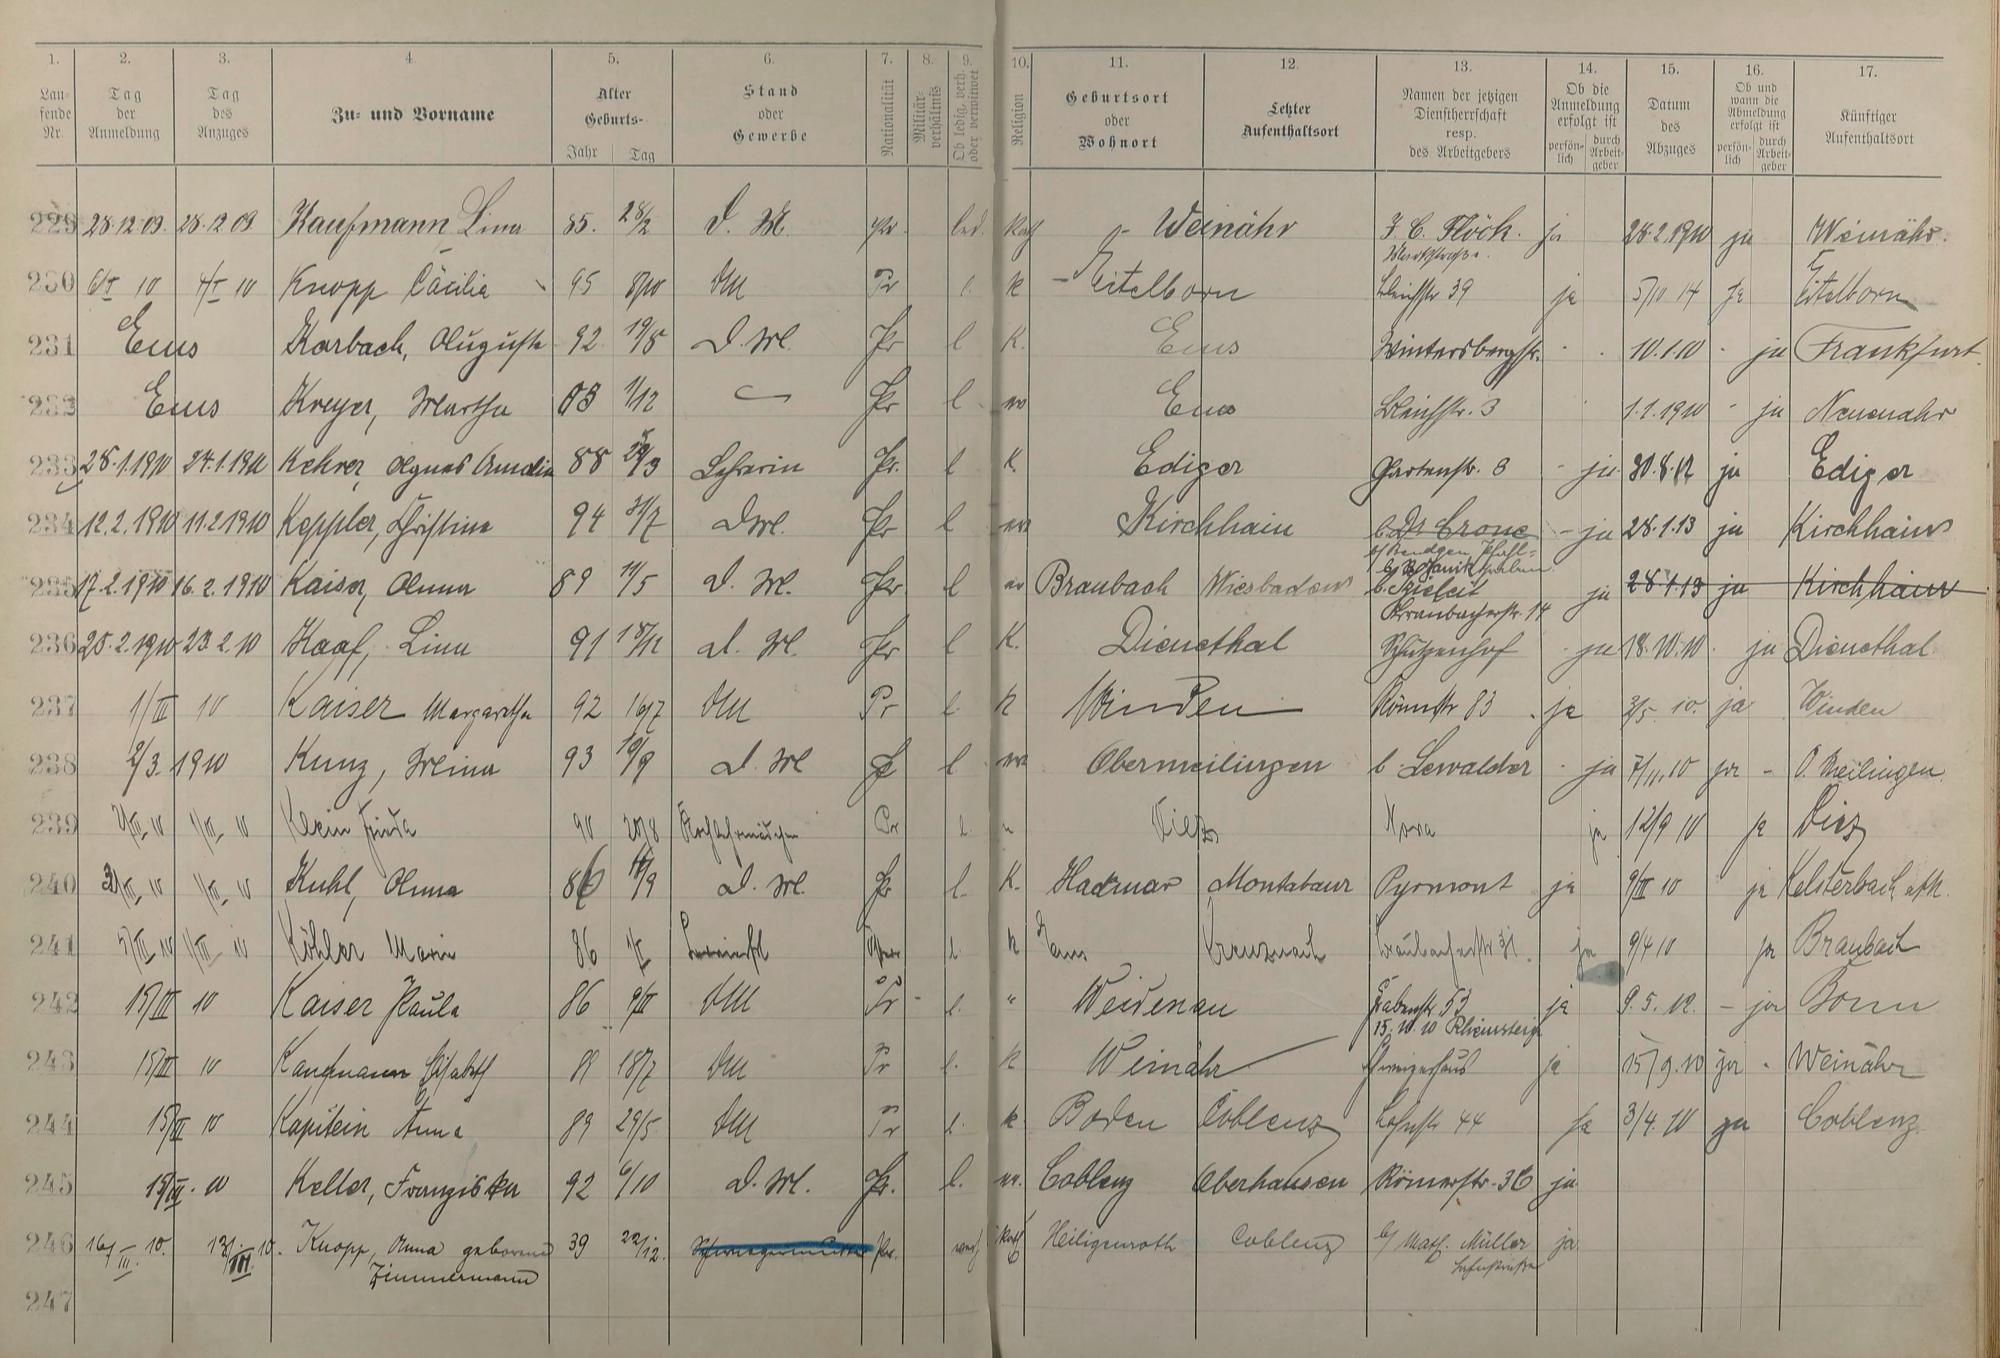 1. 2. 3. 4. 5. 6. 7. 8. 9. 10. 11. 12. 13. 14. 15. 16. 17.
Laufende Nr.
Tag der Anmeldung
Tag des Anzuges
Zu- und Vorname
Alter Geburts- Jahr Tag
Stand oder Gewerbe
Nationalität
Militärverhältnis
Ob ledig, verh. oder verwitwet
Religion
Geburtsort oder Wohnort
Letzter Aufenthaltsort
Namen der jetzigen Dienstherrschaft resp. des Arbeitgebers
Ob die Anmeldung erfolgt ist persönlich durch Arbeitgeber
Datum des Abzuges
Ob und wann die Abmeldung erfolgt ist persönlich durch Arbeitgeber
Künftiger Aufenthaltsort
229 28.12.09. 28.12.09 Kaufmann Lina 85. 28/2 D. M. led. Kath Weinähr F. C. Flöck. ja 28.2.1910 ja Weinähr.
230 10 10 Knopp Cäcilia 95 8/10 DM Pr l. k Eitelborn Bleichstr 39 ja 5/10 14 ja Eitelborn
231 Ems Korbach, Auguste 92 19/8 D. M. Pr l K. Ems Wintersbergstr. 10.1.10 ja Frankfurt
232 Ems Kreyer, Martha 83 1/12 Pr l ev Ems Bleichstr. 3 1.1.1910 ja Neuenahr
233 28.1.1910 27.1.1910 Kehrer, Agnes Amalia 88 Lehrerin Pr. l K. Ediger Gartenstr. 8 ja 30.8.12 ja Ediger
234 12.2.1910 11.2.1910 Keppler, Christina 94 31/7 D.M. Pr l ev Kirchhain b. Dr Crone ja 28.1.13 ja Kirchhain
235 17.2.1910 16.2.1910 Kaiser, Anna 89 11/5 D. M. Pr l ev Braubach Wiesbaden Braubacherstr. 14 ja 28.1.13 ja Kirchhain
236 25.2.1910 23.2.10 Kaaf, Lina 91 18/12 D. M. Pr l K. Dienethal Schützenhof ja 18.10.10. ja Dienethal
237 1/III 10 Kaiser Margaretha 92 16/7 DM Pr l. K Winden Römerstr 83 ja 3/5 10. ja Winden
238 2/3. 1910 Kunz, Mina 93 10/9 D. M. Pr l ev Obermeilingen b Lewalder ja 7/11.10 ja O. Meilingen.
239 2/III 10 1/III 10 Klein Frieda 90 20/8 Pr l. Diez ja 12/9 10 ja Diez
240 3/III 10 1/III 10 Kuhl, Anna 86 D. M. Pr l. K. Hadamar Montabaur Pyrmont ja 9/III 10 ja Kelsterbach
241 5/III 10 1/III 10 Köhler Maria 86 l. k Ems Kreuznach Braubacherstr 31. ja 9/4 10 ja Braubach
242 15/III 10 Kaiser Paula 86 9/II DM Pr l. " Weidenau Grabenstr 53 ja 9.5.12. ja Bonn
15.10.10 Rheinsteig
243 15/III 10 Kaufmann Elisabeth 89 18/7 DM Pr l. k Weinähr Schweizerhaus ja 15/9.10 ja Weinähr
244 15/III 10 Kapitein Anna 89 29/5 DM Pr l. k. Boden Coblenz Lahnstr 44 ja 3/4.10 ja Coblenz
245 15/III. 10 Keller, Franziska 92 6/10 D. M. Pr. l. ev. Coblenz Oberhausen Römerstr. 36 ja
246 16/III. 10. 12/III. 10. Knopp, Anna geborene 39 22/12. Pr. Kath Heiligenroth Coblenz b/ Math. Müller ja
Zimmermann Lahnstraße
247